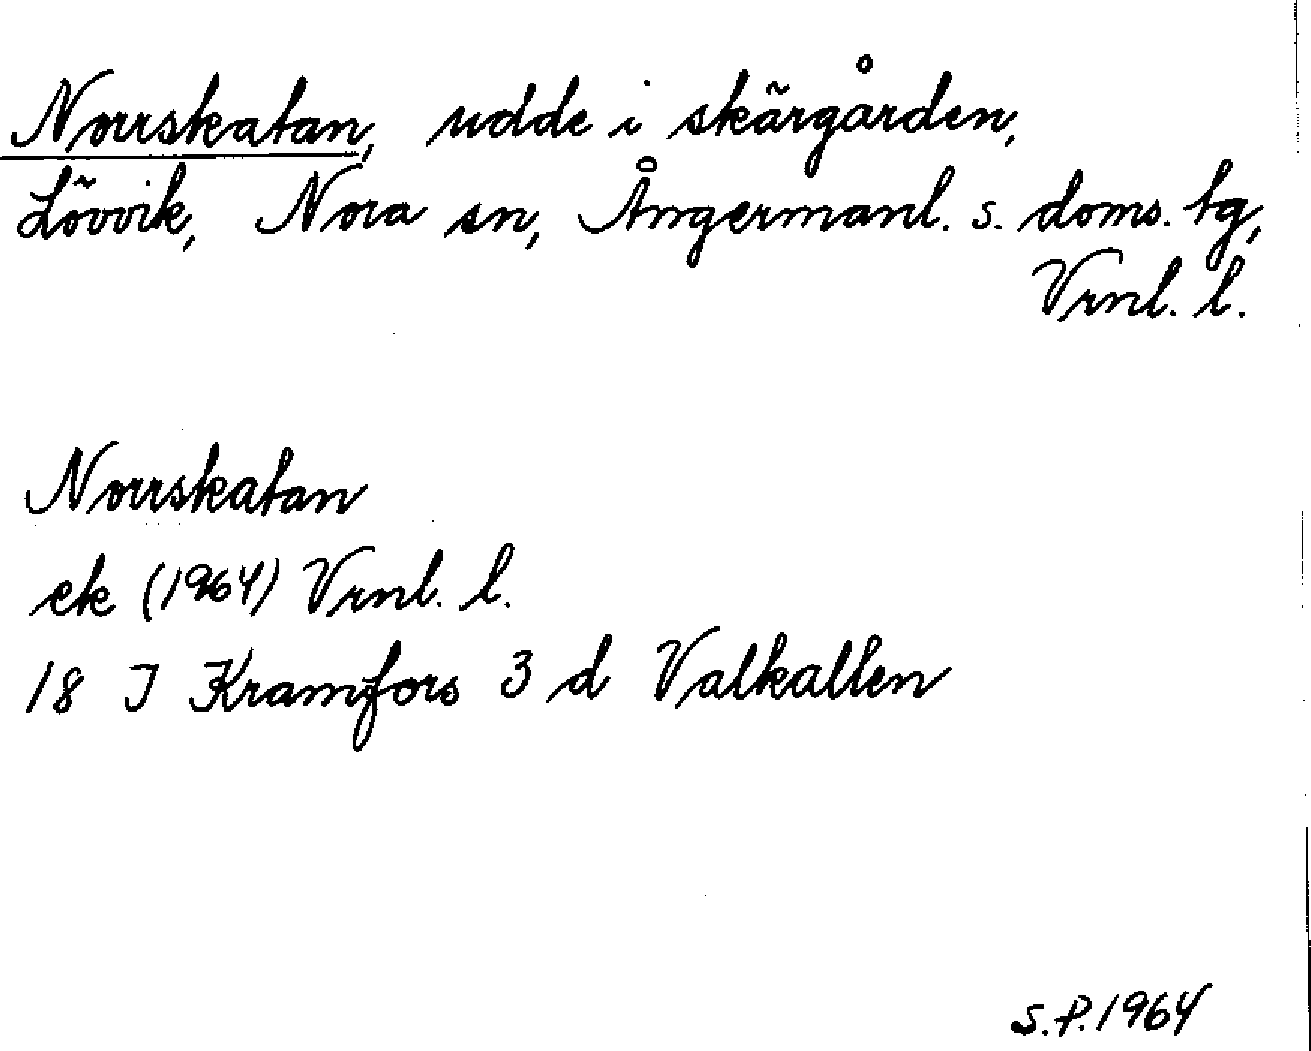 Norrskatan, udde i skärgården,
Lövvik, Nora sn, Ångermanl. s. doms. tg,
Vrnl. l.
Norrskatan
ek (1964) Vrnl. l.
18 I Kramfors 3 d Valkallen
S.P. 1964